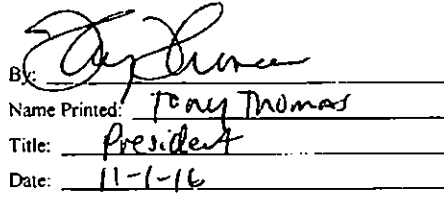 By:
Name Printed: Tony Thomas
Title: President
Date: 11-1-16